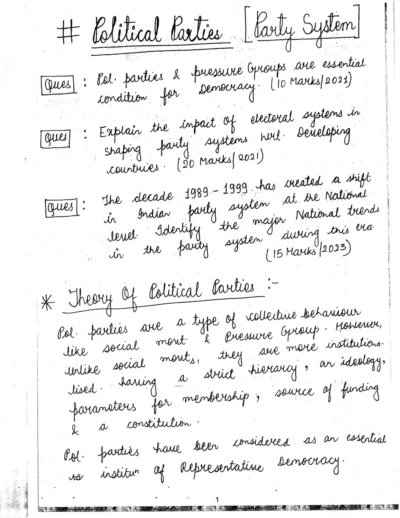 # Political Parties [Party System]
Ques : Pol. parties & pressure Groups are essential
condition for Democracy. (10 Marks/2021)
Ques : Explain the impact of electoral systems in
shaping party systems w.r.t. Developing
countries. (20 Marks/2021)
Ques : The decade 1989-1999 has created a shift
in Indian party system at the National
level. Identify the major National trends
in the party system during this era.
(15 Marks/2023)
* Theory Of Political Parties :-
Pol. parties are a type of collective behaviour
like social momt & Pressure Group. However,
unlike social momts, they are more institutiona-
lised. having a strict hierarcy, an ideology,
parameters for membership, source of funding
& a constitution.
Pol. parties have been considered as an essential
institun of Representative Democracy.
1